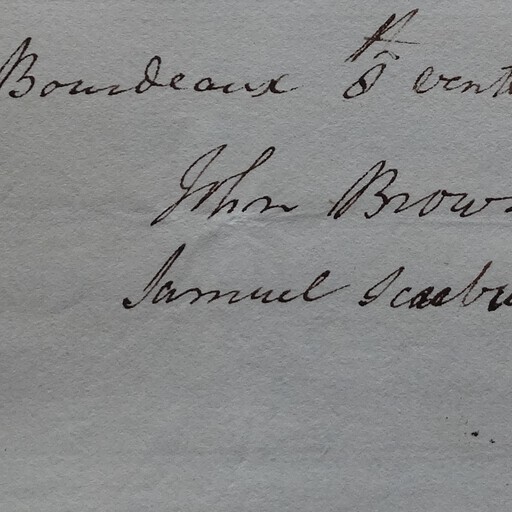 Bourdeaux 8th vent
John Brow
Samuel Scabu